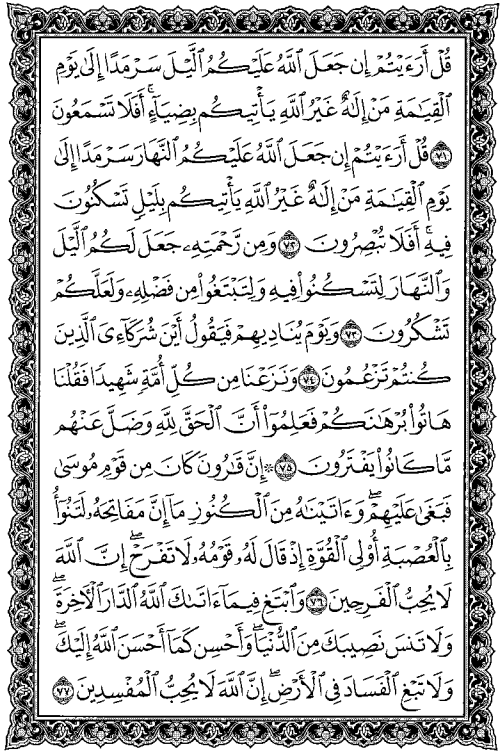 قُلْ أَرَءَيْتُمْ إِن جَعَلَ ٱللَّهُ عَلَيْكُمُ ٱلَّيْلَ سَرْمَدًا إِلَىٰ يَوْمِ
ٱلْقِيَٰمَةِ مَنْ إِلَٰهٌ غَيْرُ ٱللَّهِ يَأْتِيكُم بِضِيَآءٍ ۖ أَفَلَا تَسْمَعُونَ
﴿٧١﴾ قُلْ أَرَءَيْتُمْ إِن جَعَلَ ٱللَّهُ عَلَيْكُمُ ٱلنَّهَارَ سَرْمَدًا إِلَىٰ
يَوْمِ ٱلْقِيَٰمَةِ مَنْ إِلَٰهٌ غَيْرُ ٱللَّهِ يَأْتِيكُم بِلَيْلٍ تَسْكُنُونَ
فِيهِ ۖ أَفَلَا تُبْصِرُونَ ﴿٧٢﴾ وَمِن رَّحْمَتِهِۦ جَعَلَ لَكُمُ ٱلَّيْلَ
وَٱلنَّهَارَ لِتَسْكُنُوا۟ فِيهِ وَلِتَبْتَغُوا۟ مِن فَضْلِهِۦ وَلَعَلَّكُمْ
تَشْكُرُونَ ﴿٧٣﴾ وَيَوْمَ يُنَادِيهِمْ فَيَقُولُ أَيْنَ شُرَكَآءِىَ ٱلَّذِينَ
كُنتُمْ تَزْعُمُونَ ﴿٧٤﴾ وَنَزَعْنَا مِن كُلِّ أُمَّةٍ شَهِيدًا فَقُلْنَا
هَاتُوا۟ بُرْهَٰنَكُمْ فَعَلِمُوٓا۟ أَنَّ ٱلْحَقَّ لِلَّهِ وَضَلَّ عَنْهُم
مَّا كَانُوا۟ يَفْتَرُونَ ﴿٧٥﴾ ۞ إِنَّ قَٰرُونَ كَانَ مِن قَوْمِ مُوسَىٰ
فَبَغَىٰ عَلَيْهِمْ ۖ وَءَاتَيْنَٰهُ مِنَ ٱلْكُنُوزِ مَآ إِنَّ مَفَاتِحَهُۥ لَتَنُوٓأُ
بِٱلْعُصْبَةِ أُو۟لِى ٱلْقُوَّةِ إِذْ قَالَ لَهُۥ قَوْمُهُۥ لَا تَفْرَحْ ۖ إِنَّ ٱللَّهَ
لَا يُحِبُّ ٱلْفَرِحِينَ ﴿٧٦﴾ وَٱبْتَغِ فِيمَآ ءَاتَىٰكَ ٱللَّهُ ٱلدَّارَ ٱلْءَاخِرَةَ ۖ
وَلَا تَنسَ نَصِيبَكَ مِنَ ٱلدُّنْيَا ۖ وَأَحْسِن كَمَآ أَحْسَنَ ٱللَّهُ إِلَيْكَ ۖ
وَلَا تَبْغِ ٱلْفَسَادَ فِى ٱلْأَرْضِ ۖ إِنَّ ٱللَّهَ لَا يُحِبُّ ٱلْمُفْسِدِينَ ﴿٧٧﴾